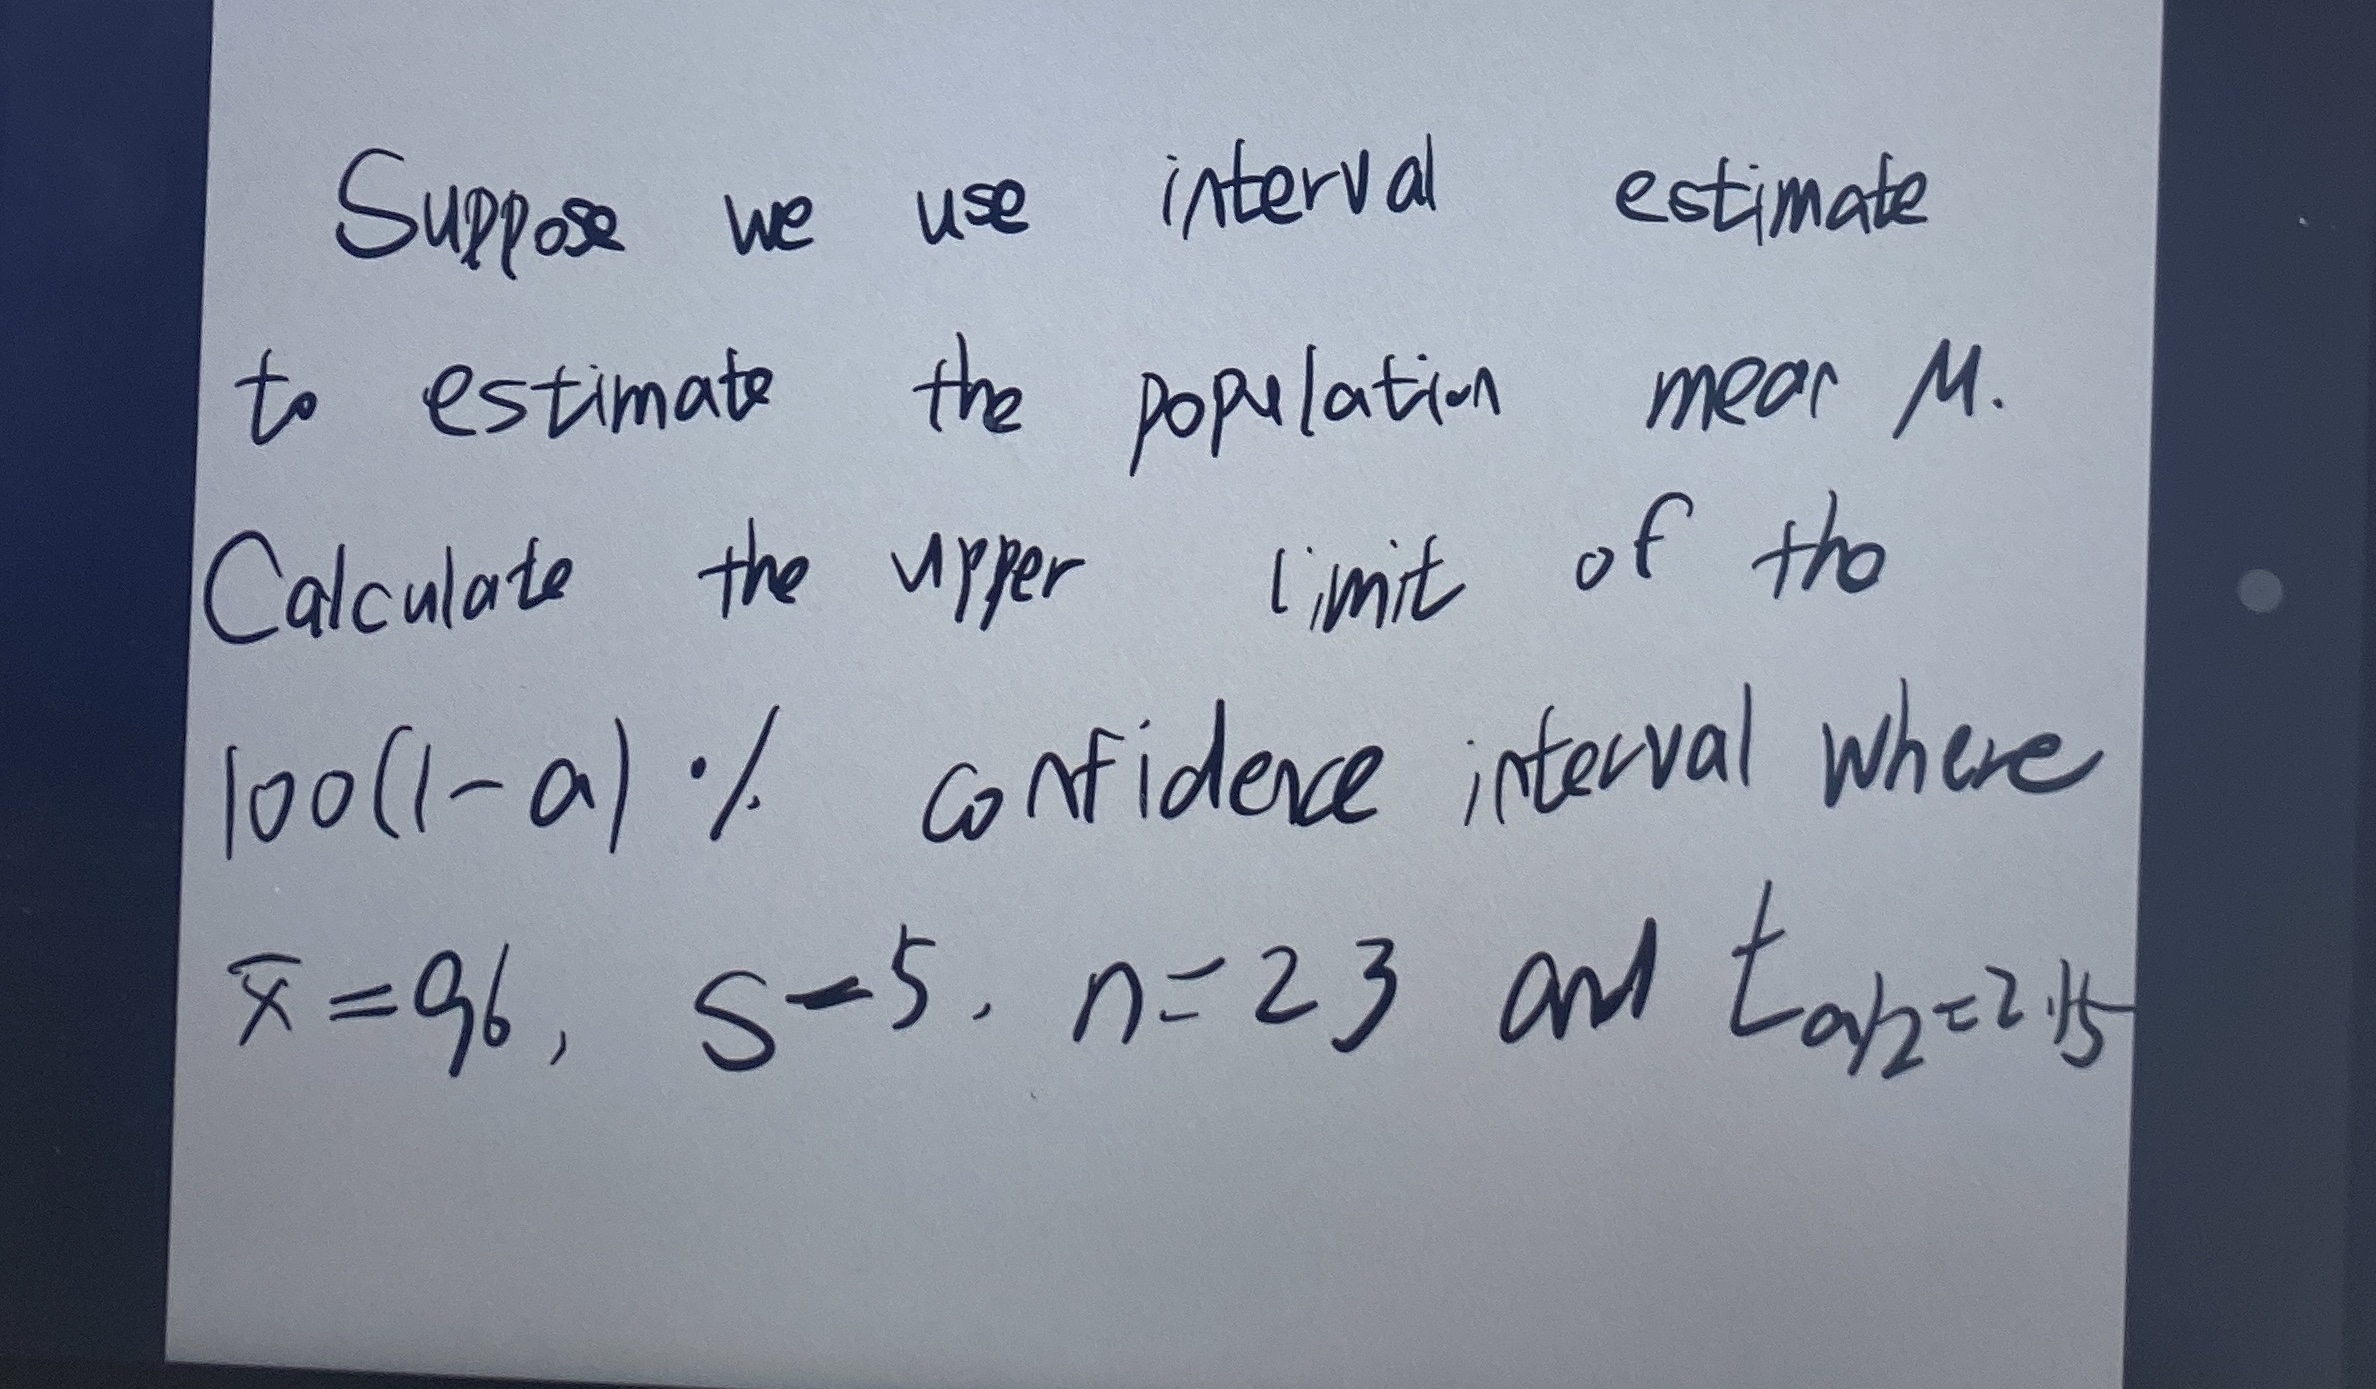 Suppose we use interval estimate
to estimate the population mean μ.
Calculate the upper limit of the
100(1-a)% confidence interval where
x̄=96, S=5, n=23 and ta/2=2.15